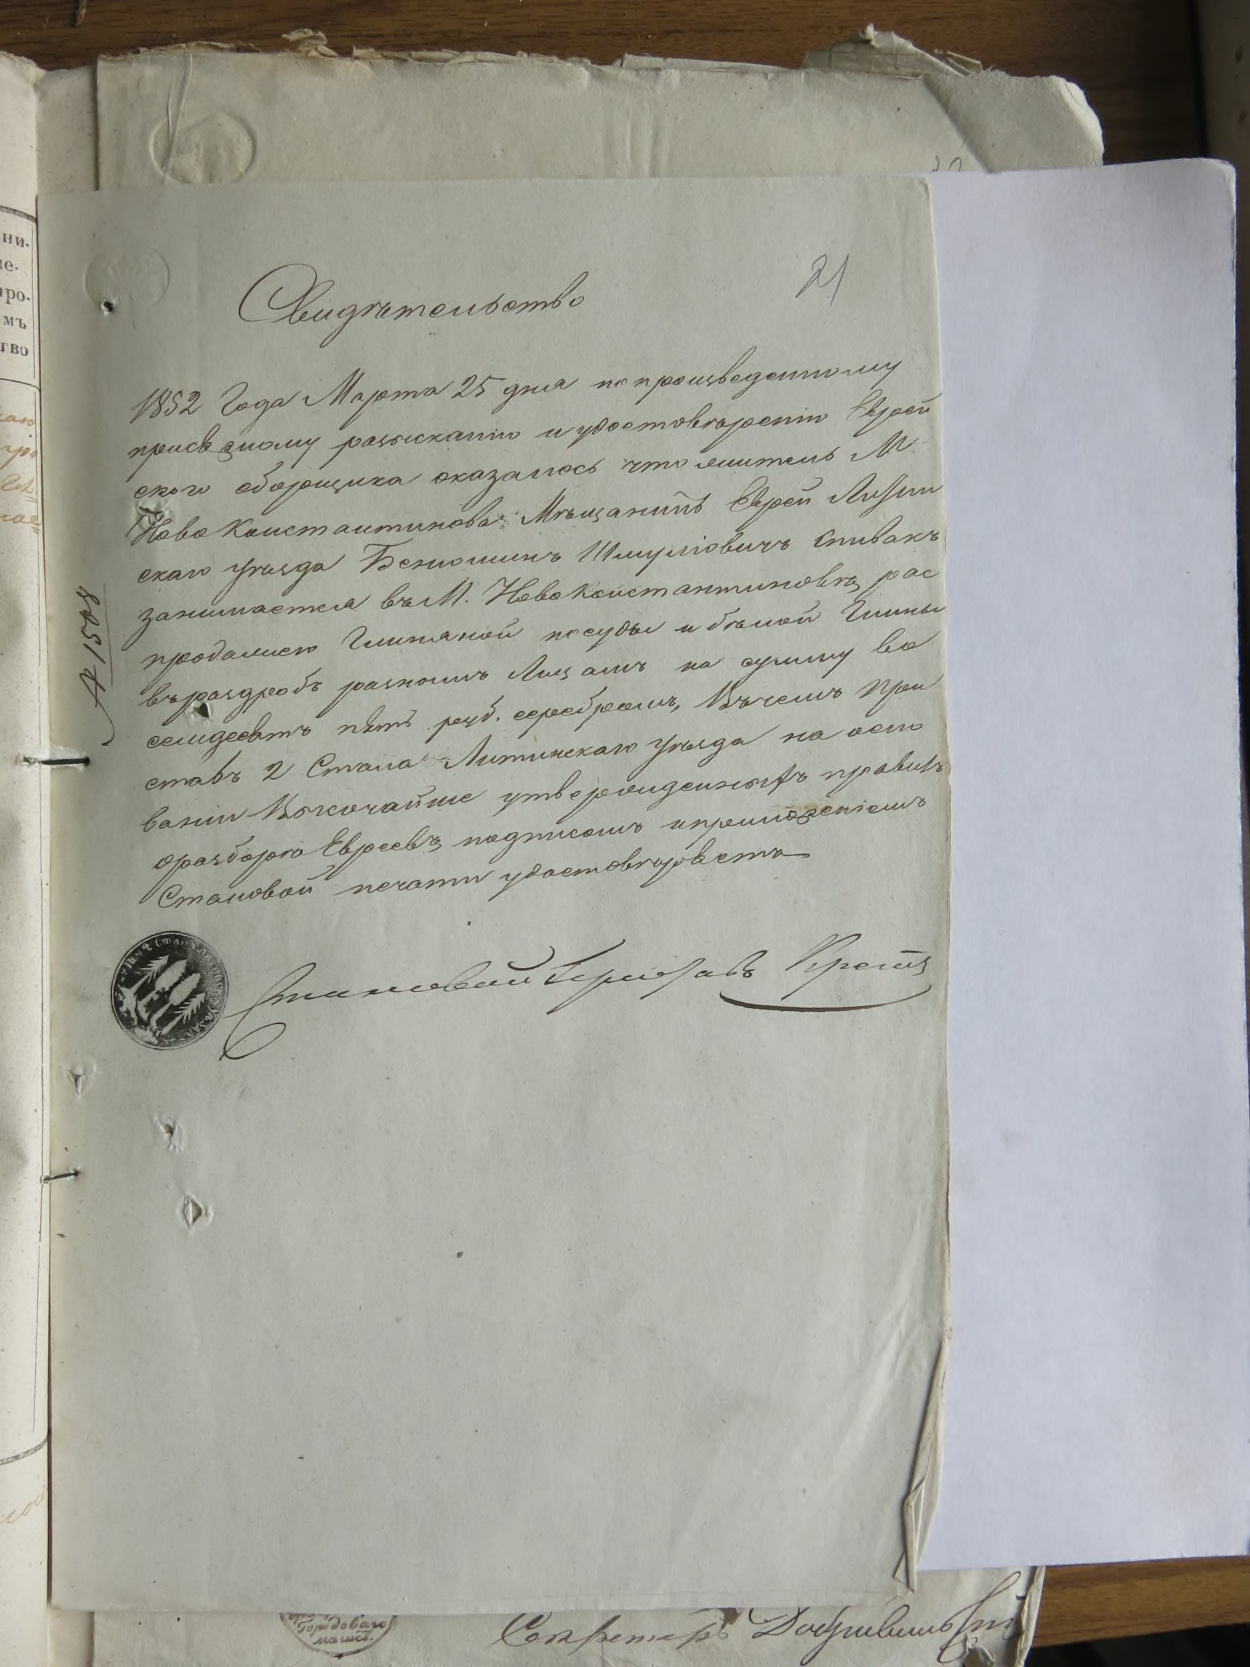 21
Свидѣтельство
1852 Года Марта 25 дня по произведенному
присяжному разысканію и удостовѣренію Еврей
скаго сборщика оказалось что житель М.
Ново Константинова Мѣщанинъ Еврей Литин
скаго уѣзда Беніоминъ Шмуліовичъ Спивакъ
занимается въ М. Ново Константиновѣ, рас
продажею Глиняной посуды и бѣлой Глины
въ раздробъ разнымъ Лицамъ на сумму во
семдесятъ пять руб. серебромъ, Въ чемъ При
ставъ 2 Стана Литинскаго уѣзда на осно
ваніи Высочайше утвержденныхъ правилъ
о разборѣ Евреевъ, подписомъ и приложеніемъ
Становой печати удостовѣряетъ
Становой Приставъ
№ 1508
ни-
ме-
про-
мъ
тво
Городоваго
Секретарь